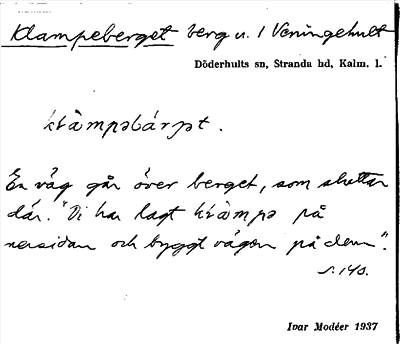 Klampeberget berg u. 1 Veningehult
Döderhults sn, Stranda hd, Kalm. l.
En väg går över berget, som sluttar
där. "Di har lagt på
nersidan och byggt vägen på dem".
s. 140.
Ivar Modéer 1937